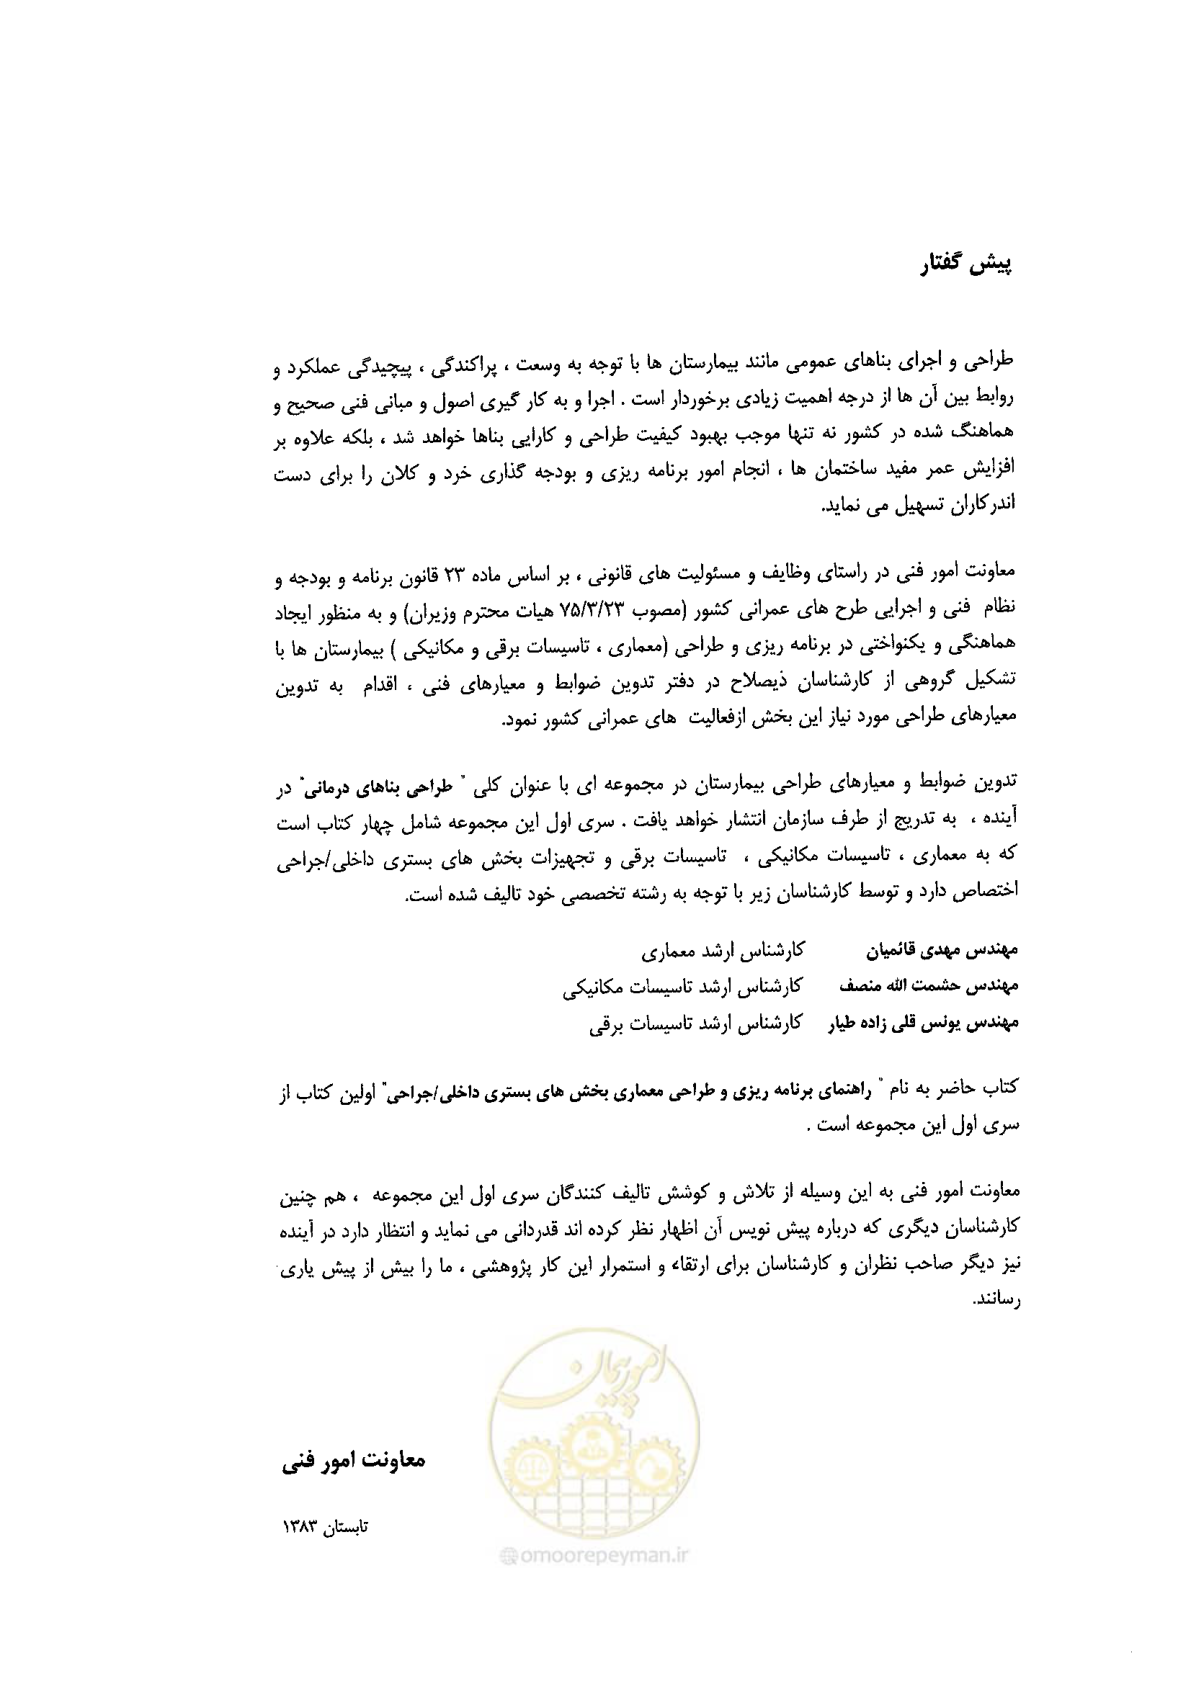 پیش گفتار
طراحی و اجرای بناهای عمومی مانند بیمارستان ها با توجه به وسعت ، پراکندگی ، پیچیدگی عملکرد و
روابط بین آن ها از درجه اهمیت زیادی برخوردار است . اجرا و به کار گیری اصول و مبانی فنی صحیح و
هماهنگ شده در کشور نه تنها موجب بهبود کیفیت طراحی و کارایی بناها خواهد شد ، بلکه علاوه بر
افزایش عمر مفید ساختمان ها ، انجام امور برنامه ریزی و بودجه گذاری خرد و کلان را برای دست
اندرکاران تسهیل می نماید.
معاونت امور فنی در راستای وظایف و مسئولیت های قانونی ، بر اساس ماده ۲۳ قانون برنامه و بودجه و
نظام فنی و اجرایی طرح های عمرانی کشور (مصوب ۷۵/۳/۲۳ هیات محترم وزیران) و به منظور ایجاد
هماهنگی و یکنواختی در برنامه ریزی و طراحی (معماری ، تاسیسات برقی و مکانیکی ) بیمارستان ها با
تشکیل گروهی از کارشناسان ذیصلاح در دفتر تدوین ضوابط و معیارهای فنی ، اقدام به تدوین
معیارهای طراحی مورد نیاز این بخش ازفعالیت های عمرانی کشور نمود.
تدوین ضوابط و معیارهای طراحی بیمارستان در مجموعه ای با عنوان کلی " طراحی بناهای درمانی" در
آینده ، به تدریج از طرف سازمان انتشار خواهد یافت . سری اول این مجموعه شامل چهار کتاب است
که به معماری ، تاسیسات مکانیکی ، تاسیسات برقی و تجهیزات بخش های بستری داخلی/جراحی
اختصاص دارد و توسط کارشناسان زیر با توجه به رشته تخصصی خود تالیف شده است.
مهندس مهدی قائمیان کارشناس ارشد معماری
مهندس حشمت الله منصف کارشناس ارشد تاسیسات مکانیکی
مهندس یونس قلی زاده طیار کارشناس ارشد تاسیسات برقی
کتاب حاضر به نام " راهنمای برنامه ریزی و طراحی معماری بخش های بستری داخلی/جراحی" اولین کتاب از
سری اول این مجموعه است .
معاونت امور فنی به این وسیله از تلاش و کوشش تالیف کنندگان سری اول این مجموعه ، هم چنین
کارشناسان دیگری که درباره پیش نویس آن اظهار نظر کرده اند قدردانی می نماید و انتظار دارد در آینده
نیز دیگر صاحب نظران و کارشناسان برای ارتقاء و استمرار این کار پژوهشی ، ما را بیش از پیش یاری
رسانند.
امور پیمان
معاونت امور فنی
تابستان ۱۳۸۳
@omoorepeyman.ir